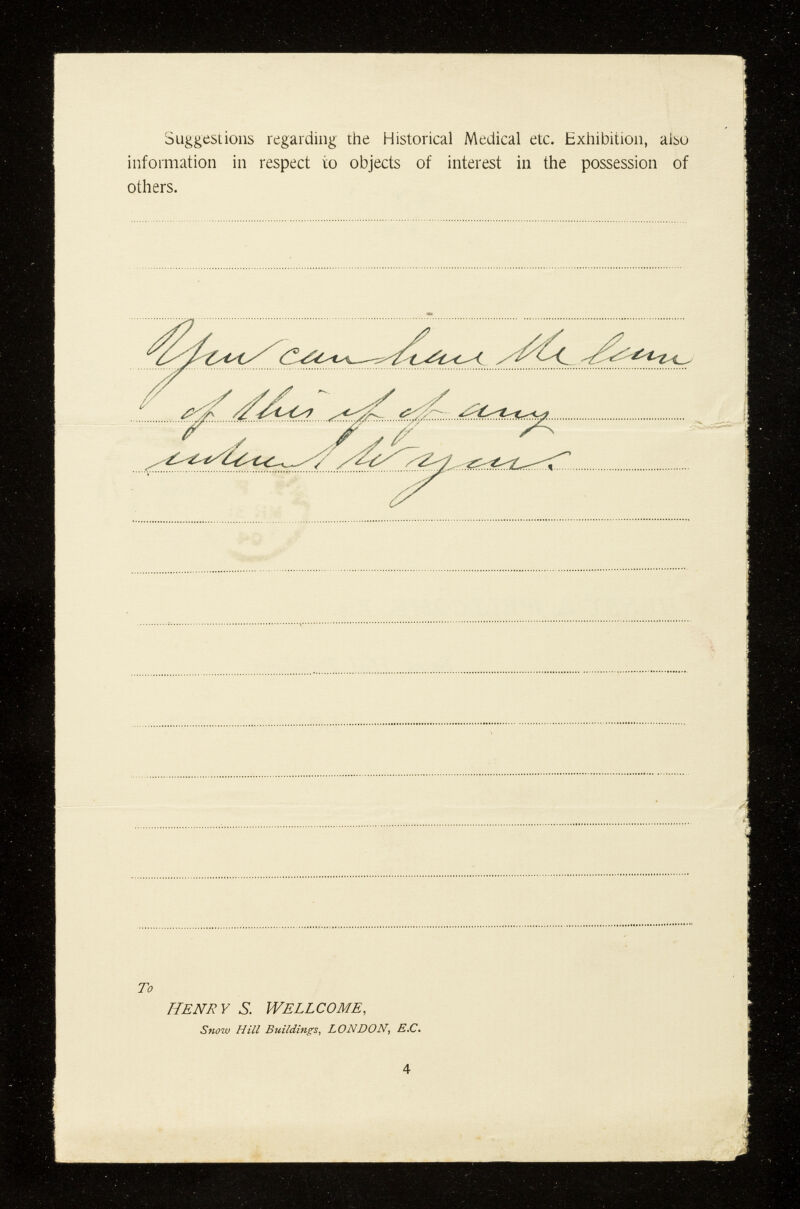 Suggestions regarding the Historical Medical etc. Exhibition, also
information in respect to objects of interest in the possession of
others.
You can have the loan
of this if of any
interest to you.
To
HENRY S. WELLCOME,
Snow Hill Buildings, LONDON, E.C.
4